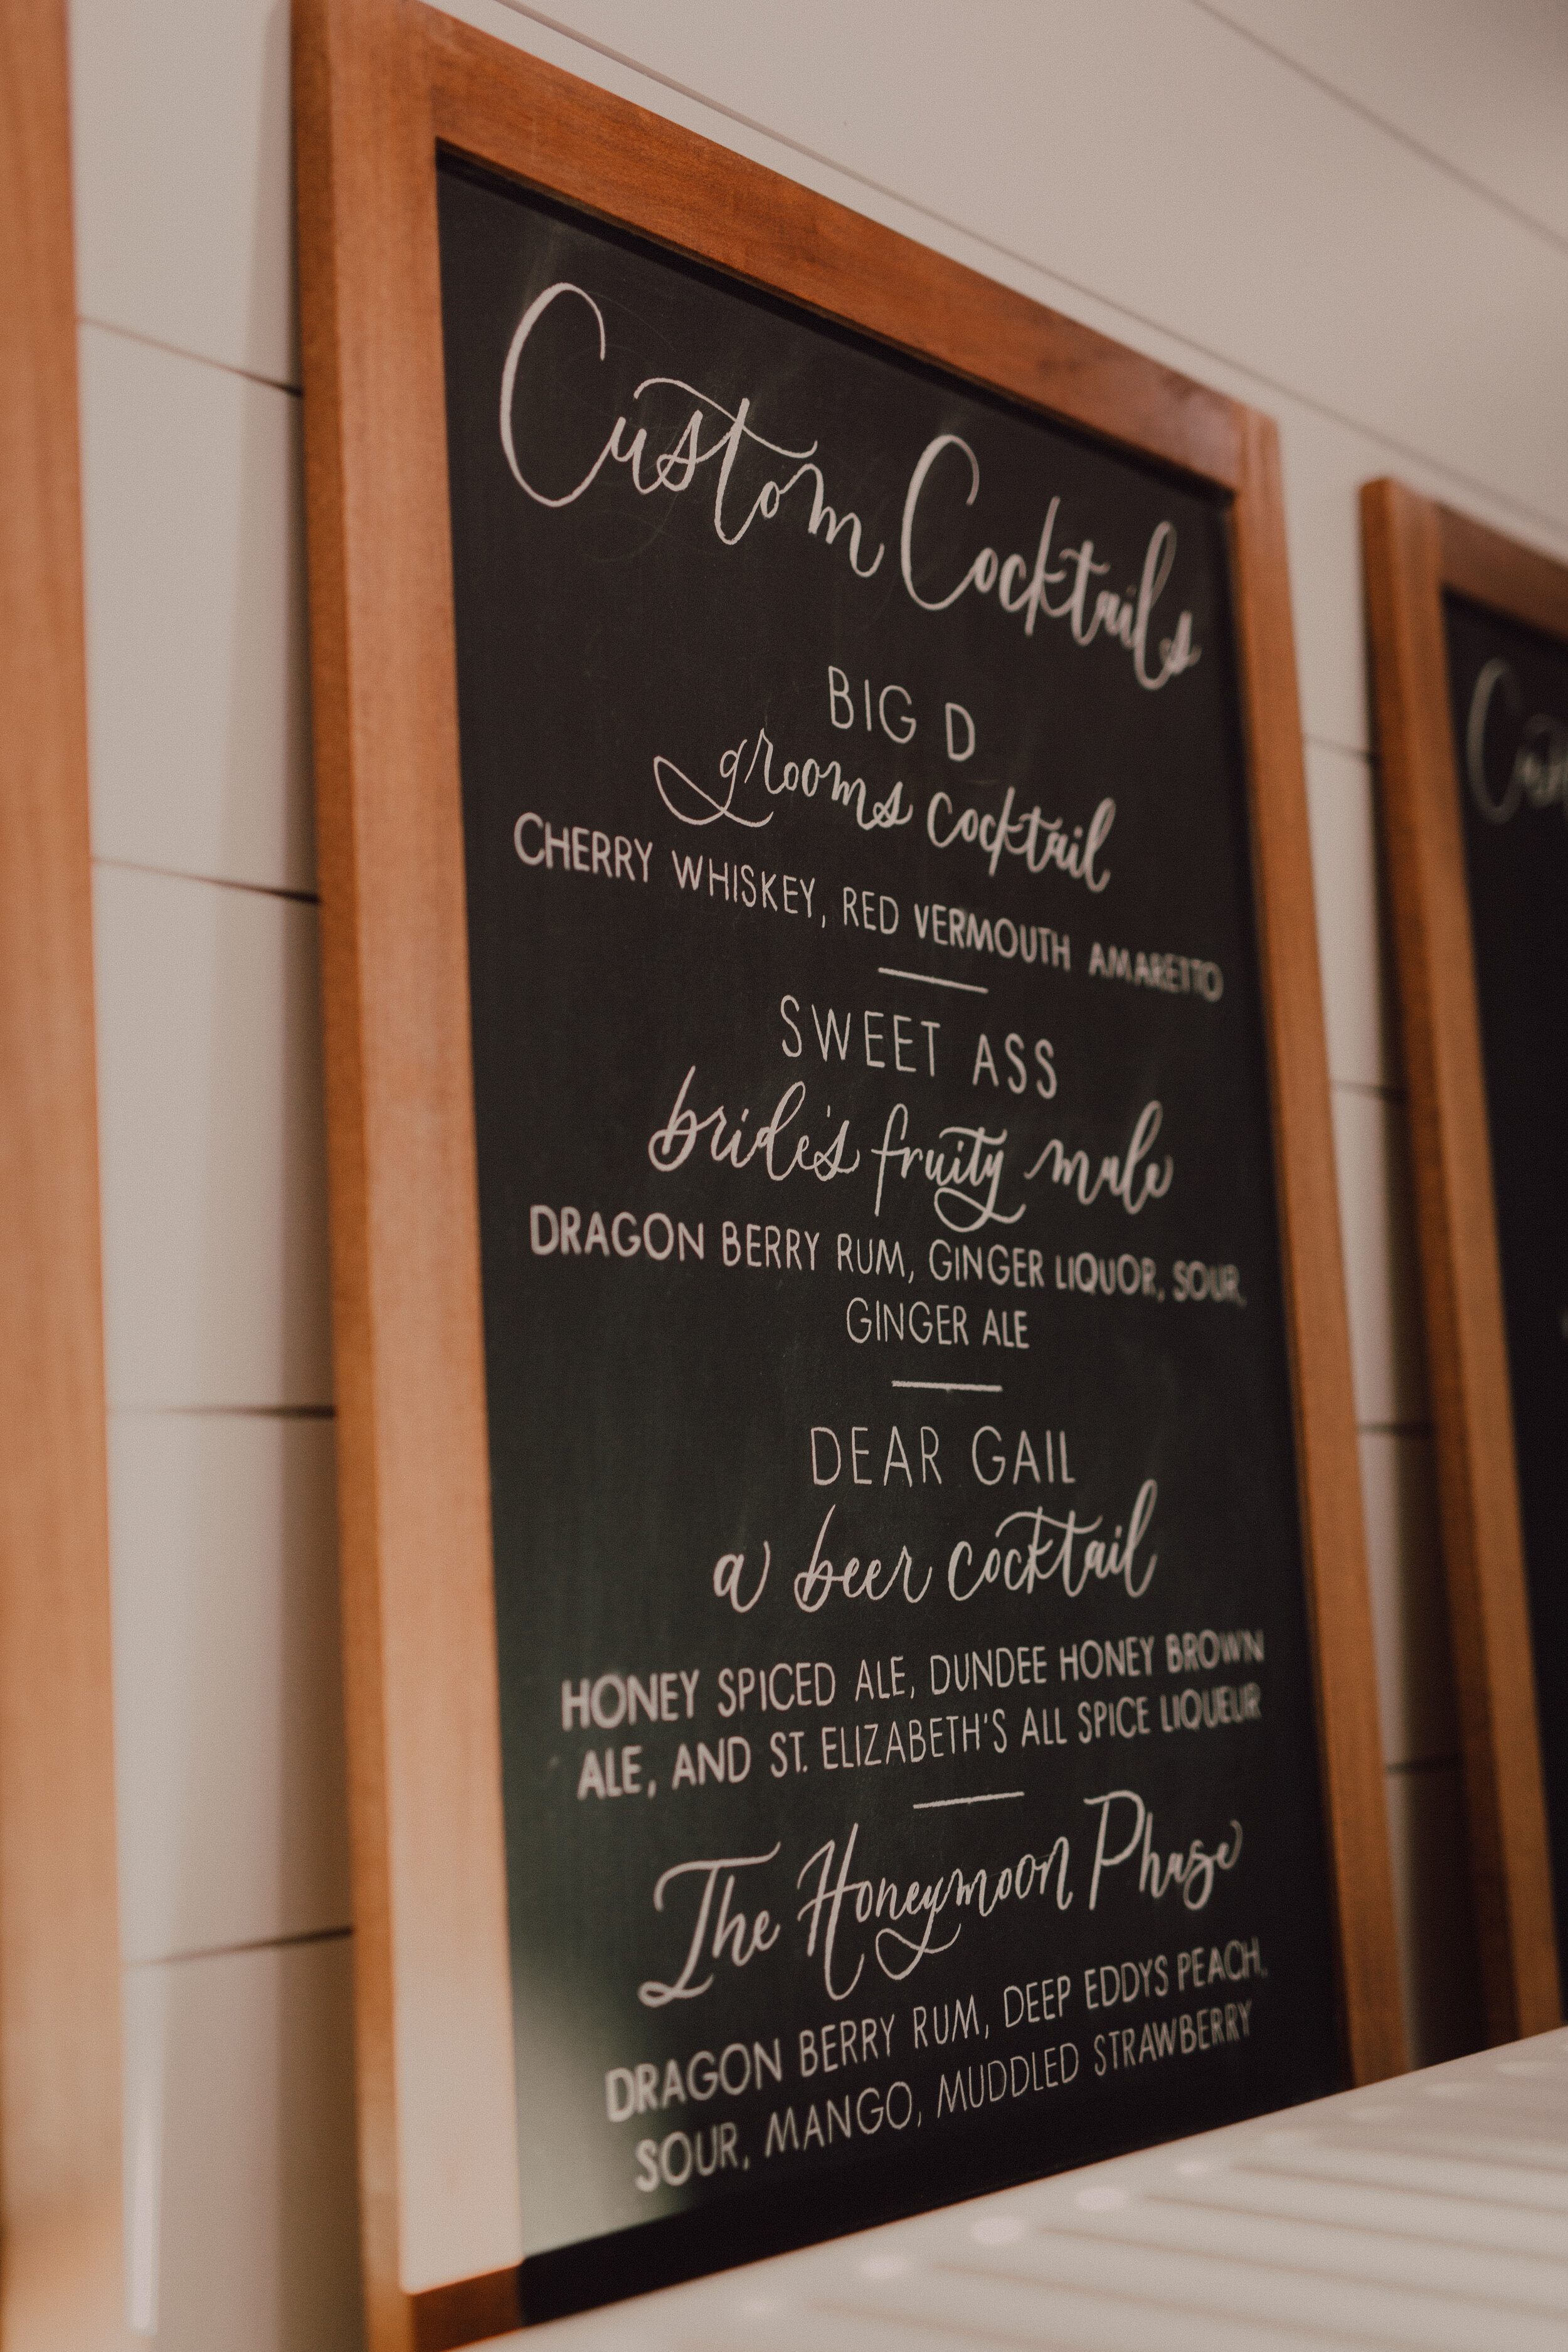 Custom Cocktails
BIG D
grooms cocktail
CHERRY WHISKEY, RED VERMOUTH AMARETTO
SWEET ASS
bride's fruity mule
DRAGON BERRY RUM, GINGER LIQUOR, SOUR,
GINGER ALE
DEAR GAIL
a beer cocktail
HONEY SPICED ALE, DUNDEE HONEY BROWN
ALE, AND ST. ELIZABETH'S ALL SPICE LIQUEUR
The Honeymoon Phase
DRAGON BERRY RUM, DEEP EDDYS PEACH,
SOUR, MANGO, MUDDLED STRAWBERRY